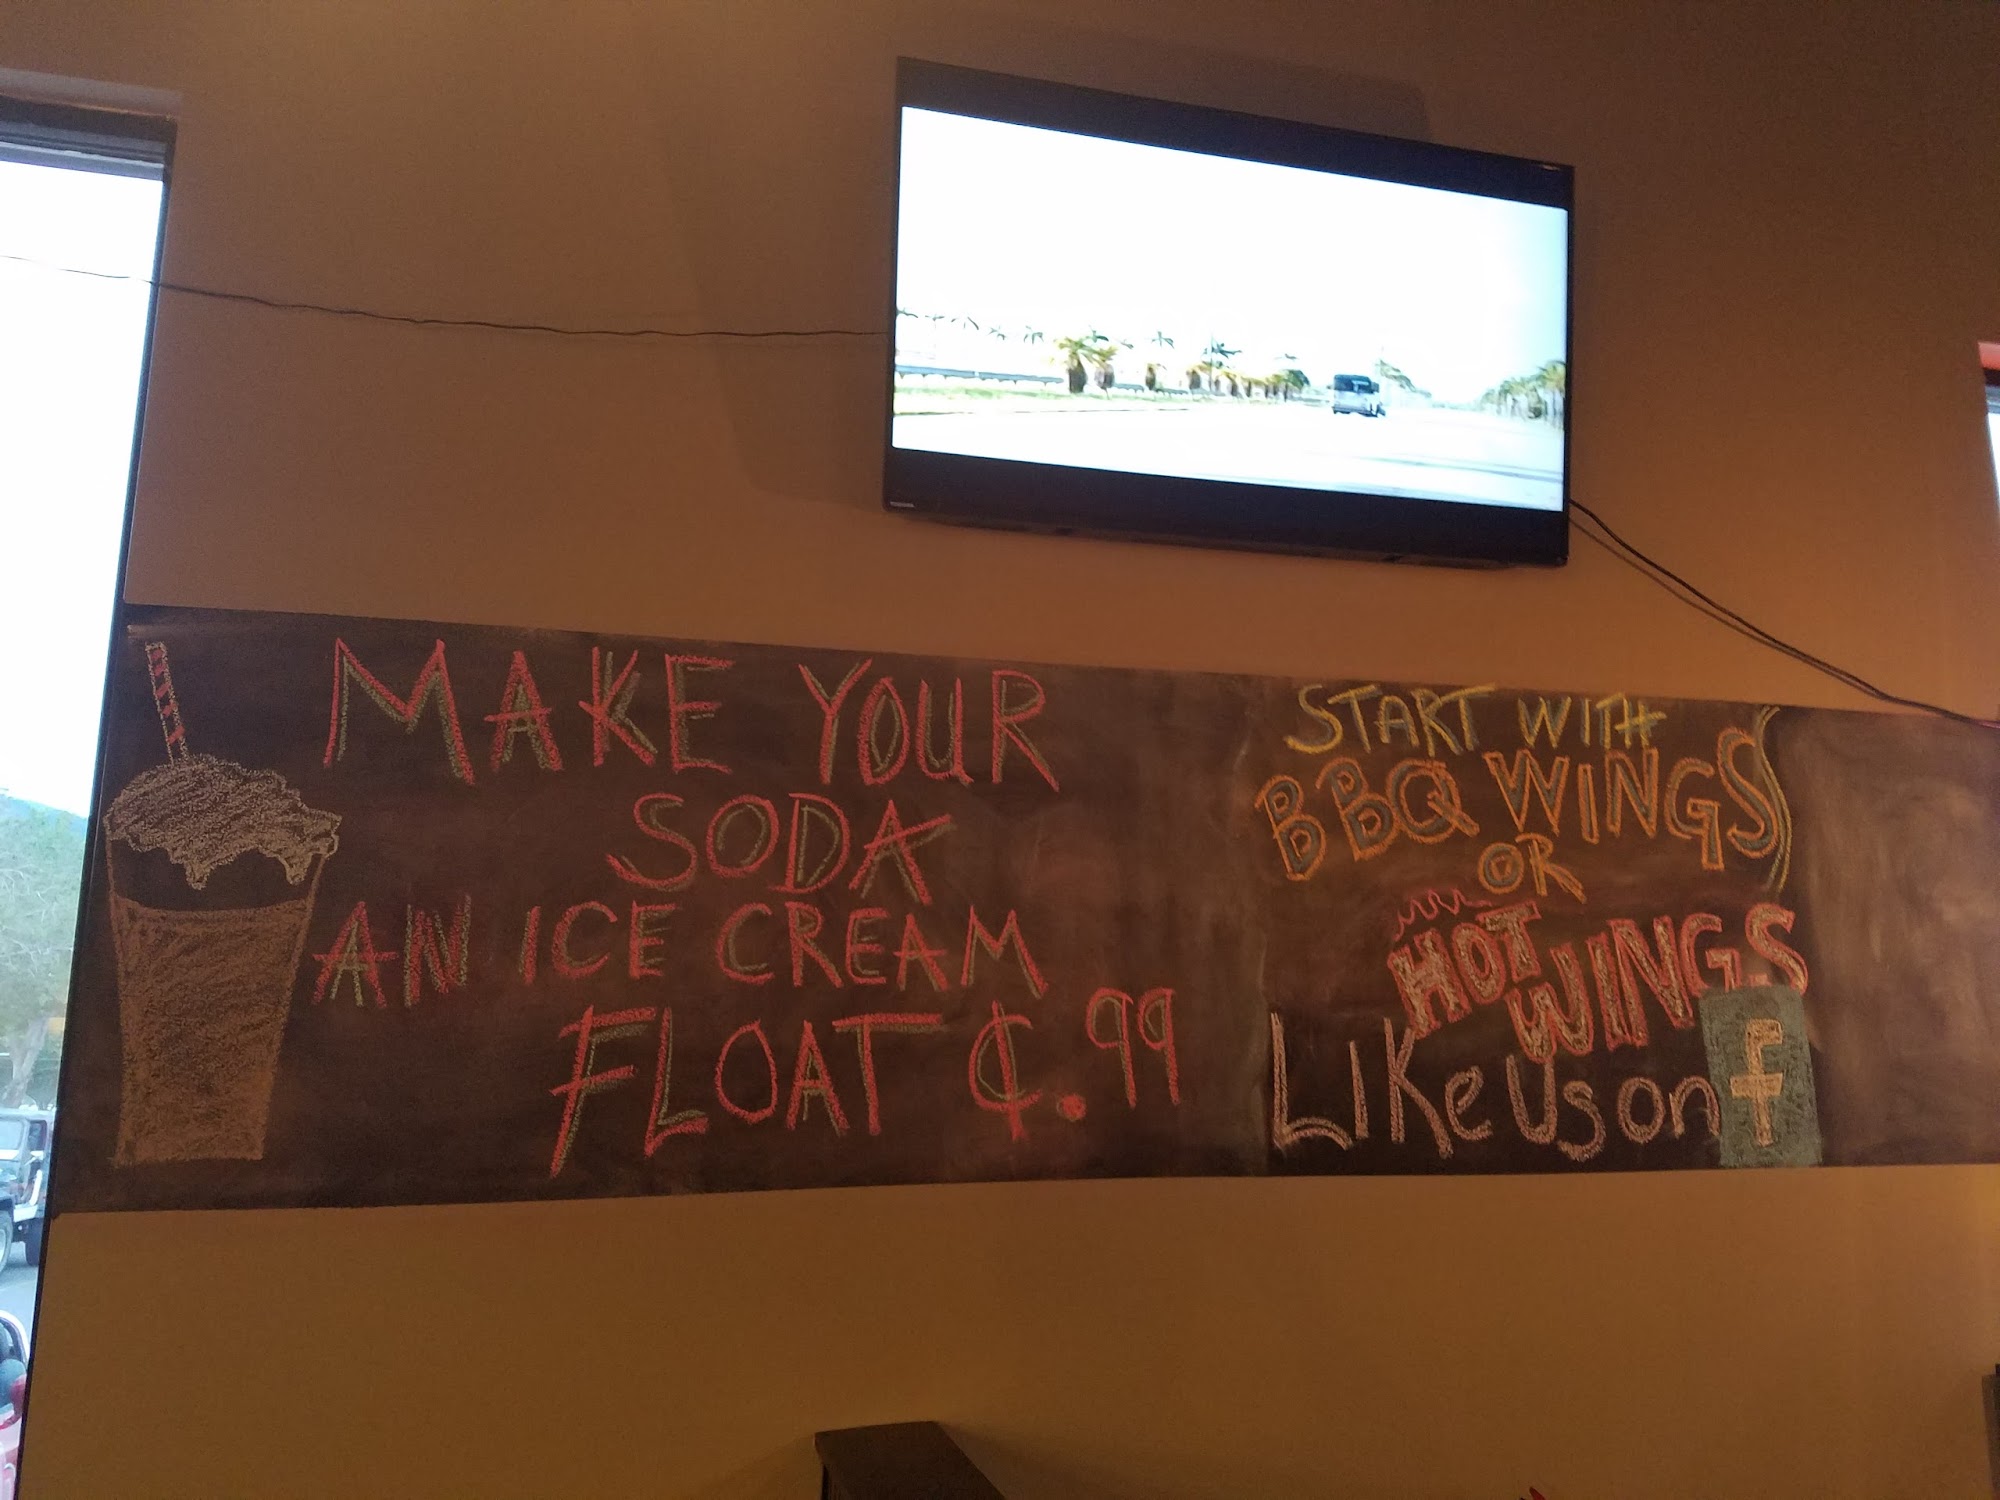 TOSHIBA
MAKE YOUR
SODA
AN ICE CREAM
FLOAT ¢.99
START WITH
BBQ WINGS
OR
HOT
WINGS
LIKe Us on f